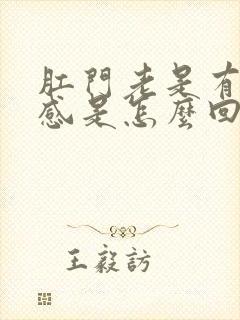 肛門老是有
感是怎麼回
王毅訪